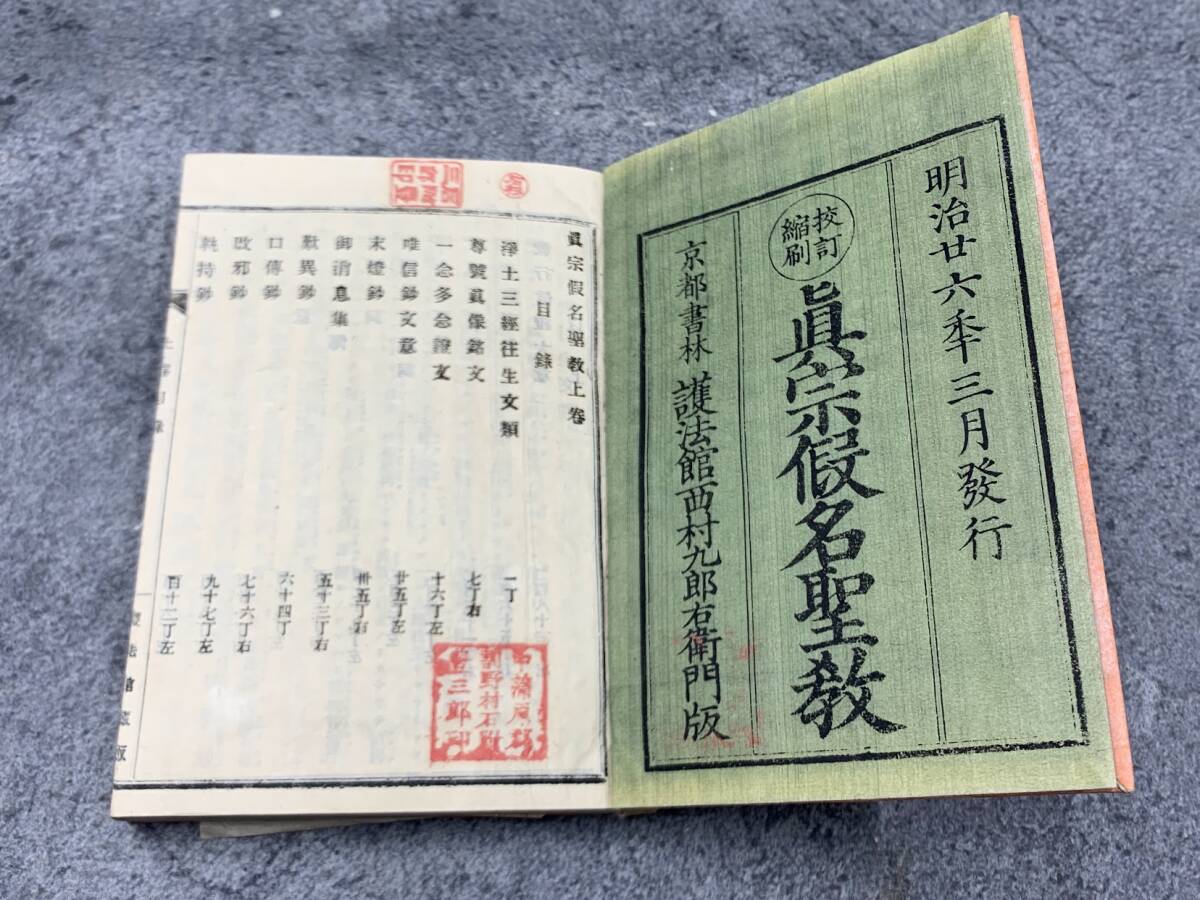 明治廿六年三月發行
校訂
縮刷
眞宗假名聖教
京都書林 護法館西村九郎右衛門版
眞宗假名聖教上卷
目錄
淨土三經往生文類 一丁
尊號眞像銘文 七丁右
一念多念證文 十六丁左
唯信鈔文意 廿五丁左
末燈鈔 卅五丁右
御消息集 五十三丁右
歎異鈔 六十四丁
口傳鈔 七十六丁右
改邪鈔 九十七丁左
執持鈔 百十二丁左
護法館藏版
中蒲原郡
村石附
三郎印